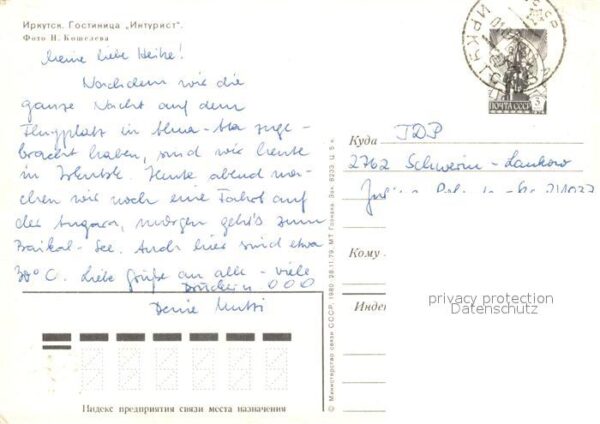 Иркутск. Гостиница „Интурист".
Фото Н. Кошелева
Meine liebe Heike!
Nachdem wir die
ganze Nacht auf dem
Flugplatz in Alma-Ata zuge-
bracht haben, sind wir heute
in Irkutsk. Heute abend ma-
chen wir noch eine Fahrt auf
der Angara, morgen geht's zum
Baikal-See. Auch hier sind etwa
30°C. Liebe Grüße an alle - viele
Drückern O O O
Deine Mutti
ИРКУТСК
ПОЧТА СССР
3
Куда DDR
2762 Schwerin - Lankow
Кому
Индек
privacy protection
Datenschutz
© Министерство связи СССР, 1980. 28.11.79. МТ Гознака. Зак. 8233. Ц. 5 к.
Индекс предприятия связи места назначения